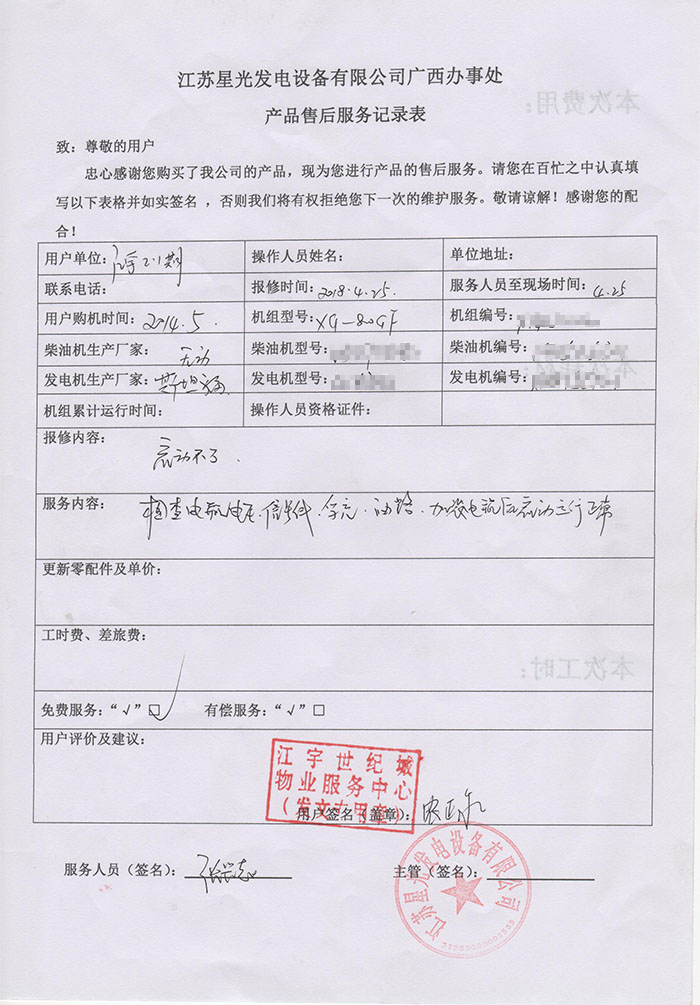 江苏星光发电设备有限公司广西办事处
产品售后服务记录表
致：尊敬的用户
忠心感谢您购买了我公司的产品，现为您进行产品的售后服务。请您在百忙之中认真填
写以下表格并如实签名 ，否则我们将有权拒绝您下一次的维护服务。敬请谅解！感谢您的配
合！
用户单位： 操作人员姓名： 单位地址：
联系电话： 报修时间：2018.4.25. 服务人员至现场时间：4.25
用户购机时间：2014.5. 机组型号：XG-80GF 机组编号：
柴油机生产厂家：无动 柴油机型号： 柴油机编号：
发电机生产厂家：斯坦福 发电机型号： 发电机编号：
机组累计运行时间： 操作人员资格证件：
报修内容：
启动不了.
服务内容：
检查电瓶电压.信号线. 油路.加装电瓶后启动运行正常
更新零配件及单价：
工时费、差旅费：
免费服务：“√”□ 有偿服务：“√”□
用户评价及建议：
江宇世纪城
物业服务中心
（发文专用章）
用户签名（盖章）：
服务人员（签名）： 主管（签名）：
江苏星光发电设备有限公司
本次费用：
本次工时：